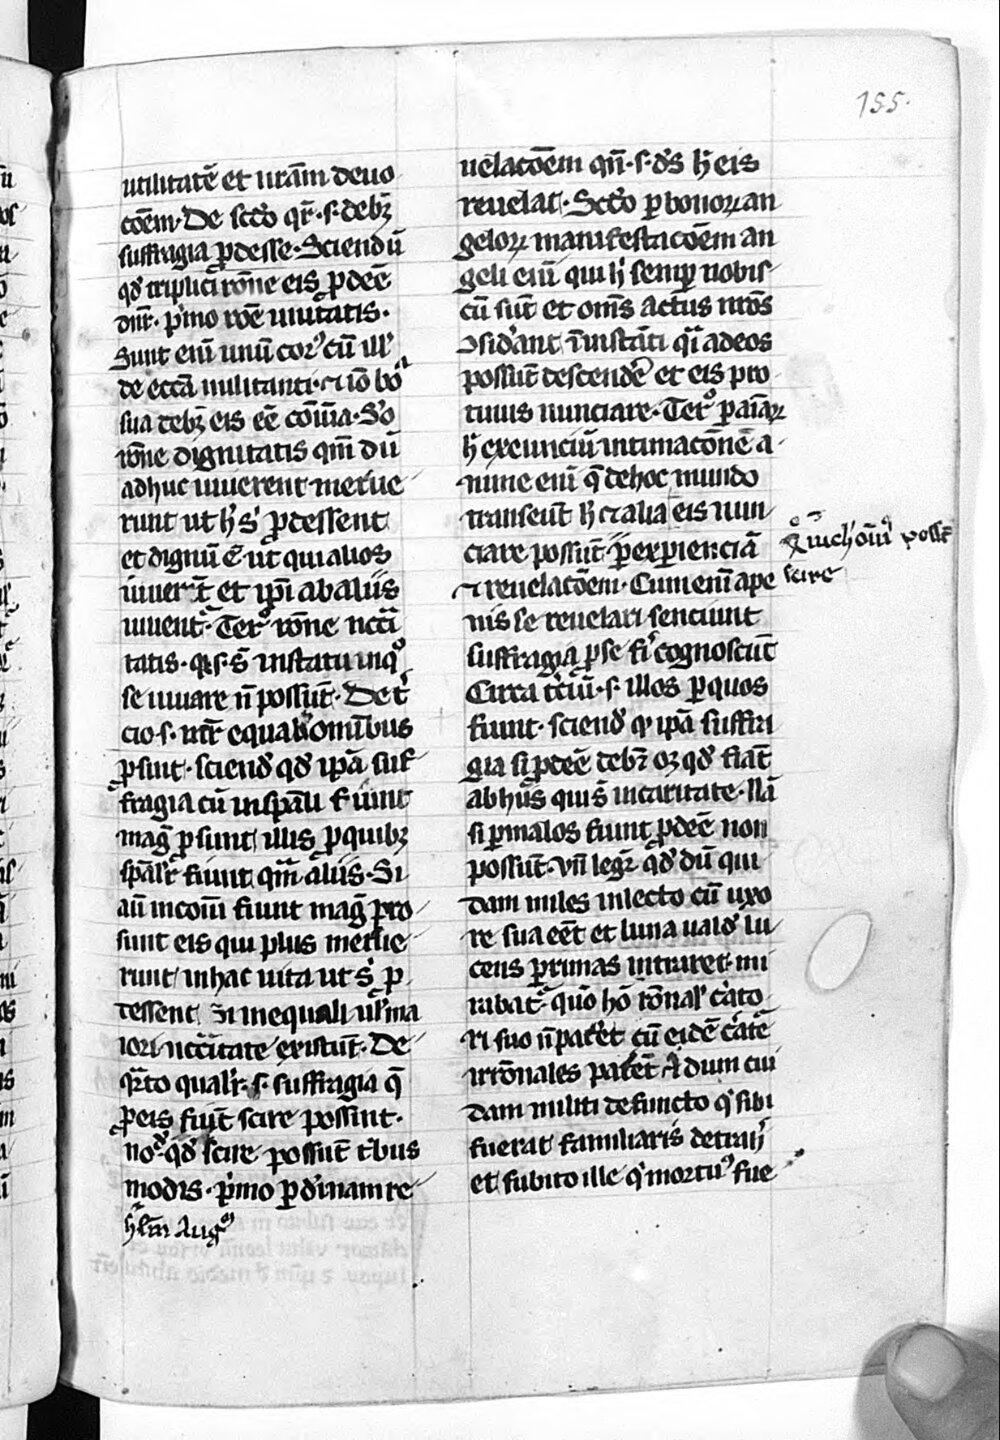 155.
utilitatē et urām deuo
cōem. De sc̄do qr̄. s. debꝫ
suffragia ꝓdesse. Sciendū
qd̛ triplici rōne eis ꝓdeē
dn̄t. p̛mo rōe unitatis.
Sunt eniᷓ unū corꝰ cū ill̛
de ecc̄a militanti. ⁊ iō boᷓ
sua debꝫ eis eē cōīa. S̛o
rōne dignitatis qm̄ dū
adhuc uiuerent merue
runt ut h̛ s̛ ꝓdessent
et dignū ē ut qui alios
iuuerūt et ip̄i ab aliis
iuuent̛. Terꝰ rōne ncc̄i
tatis. qꝛ s. s̄ in statu in qͦ
se iuuare n̄ possūt. De t̛
cio. s. utr̄ equal̛r omībus
ꝓsint. sciend̛ qd̛ ipā suf
fragia cū in spāli fiunt
mag̛ ꝓsunt illis ꝓ quibꝫ
spāl̛r fiunt qm̄ aliis. Si
aū in cōīi fiunt mag̛ pro
sunt eis qui plus merue
runt in hac uita ut s̛ ꝓ
dessent ul̛ in equali ul̛ ma
iori nccītate existūt. De
qr̄to qual̛r. s. suffragia q̄
ꝓ eis fiūt scire possint.
no. qd̛ scire possūt tͥbus
modis. p̛mo ꝑ diuinam re
h̛ l̄m Augꝰ
uelacōem qn̄. s. d̛s h̄ eis
reuelat. Sc̄do ꝑ bonoꝝ an
geloꝝ manifestacōem an
geli eniᷓ qui h̛ semꝑ nobis
cū sūt et om̄s actus nr̄os
ↄsid̛ant ī instāti qͣi ad eos
possūt descendē et eis pro
tinus nunciare. Terꝰ ꝑ aīaꝝ
h̛ exeunciū intimacōnē a
nime eniᷓ q̄ de hoc mundo
transeūt h̛ ⁊ alia eis nun
ciare possūt. ꝑ experienciā
⁊ reuelacōem. Cum eniᷓ a pe
nis se reuelari senciunt
suffragia ꝓ se fi̛ cognoscūt
Circa t̛ciū. s. illos ꝑ quos
fiunt. sciend̛ qͥ ipā suffra
gia si ꝓdeē debēt oꝫ qd̛ fiāt
ab hiis qui s̄ in caritate. Nā
si ꝑ malos fiunt ꝓdeē non
possūt. Vn̄ legit̛ qd̛ dū qui
dam miles in lecto cū uxo
re sua eēt et luna uald̛ lu
cens ꝑ rimas intraret mi
rabat̛ quō hō rōnal̛ c̛ato
ri suo n̄ paret cū eidē c̛atē
irrōnales parēt ⁊ dum cui
dam militi defuncto qͥ sibi
fuerat familiaris detrah̛
et subito ille qͥ mortuꝰ fue
scire